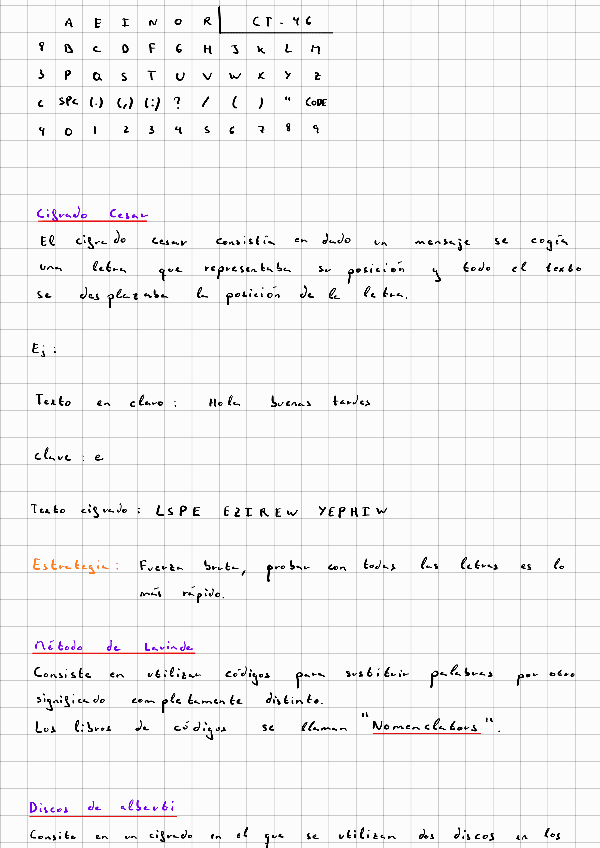 A E I N O R CT-46
8 B C D F G H J K L M
3 P Q S T U V W X Y Z
c SPC (.) (,) (:) ? / ( ) " CODE
9 0 1 2 3 4 5 6 7 8 9
Cifrado Cesar
El cifrado cesar consistía en dado un mensaje se cogía
una letra que representaba su posición y todo el texto
se desplazaba la posición de la letra.
Ej:
Texto en claro: Hola buenas tardes
clave: e
Texto cifrado: LSPE EZIREW YEPHIW
Estrategia: Fuerza bruta, probar con todas las letras es lo
más rápido.
Método de Lavinde
Consiste en utilizar códigos para sustituir palabras por otro
significado completamente distinto.
Los libros de códigos se llaman "Nomenclators".
Discos de alberti
Consite en un cifrado en el que se utilizan dos discos en los